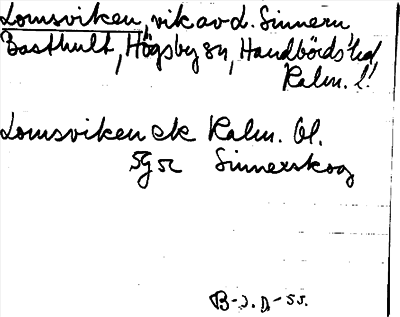 Lomsviken, vik av d. Sinnern
Basthult, Högsby sn, Handbörds hd
Kalm. l.
Lomsviken ek Kalm. bl.
5G SE Sinnerskog
B-J. D-55.